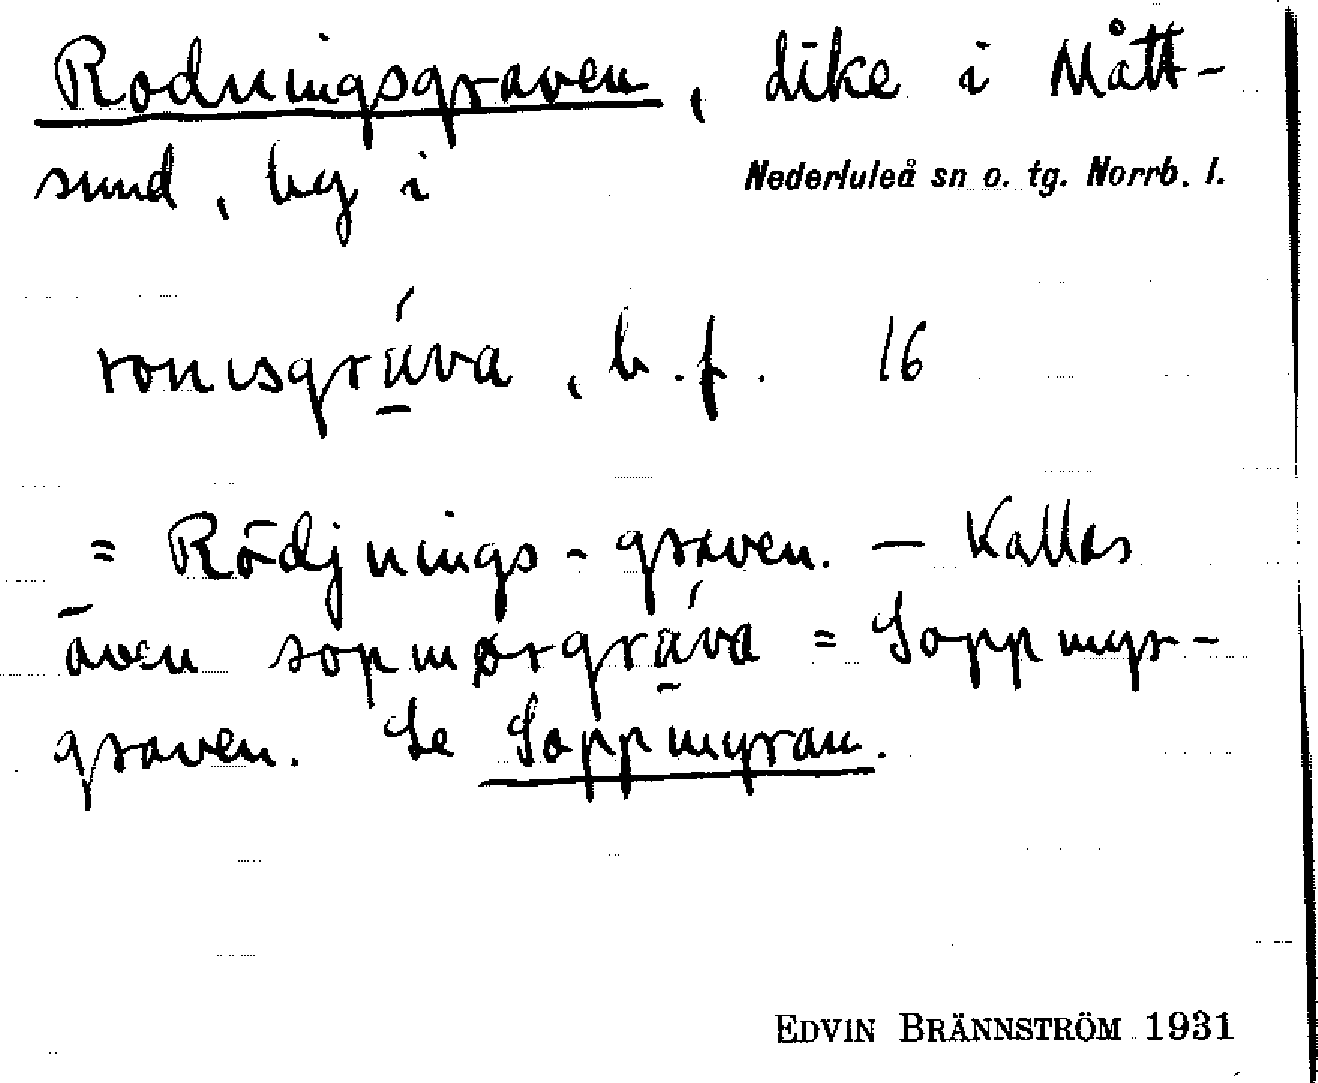 Rodningsgraven, dike i Mått-
sund, by i Nederluleå sn o. tg. Norrb. l.
ronısgrá̱va, b.f. 16
= Rödjnings-graven. — Kallas
även sopmørgrá̱va = Soppmyr-
graven. Se Soppmyran.
EDVIN BRÄNNSTRÖM 1931